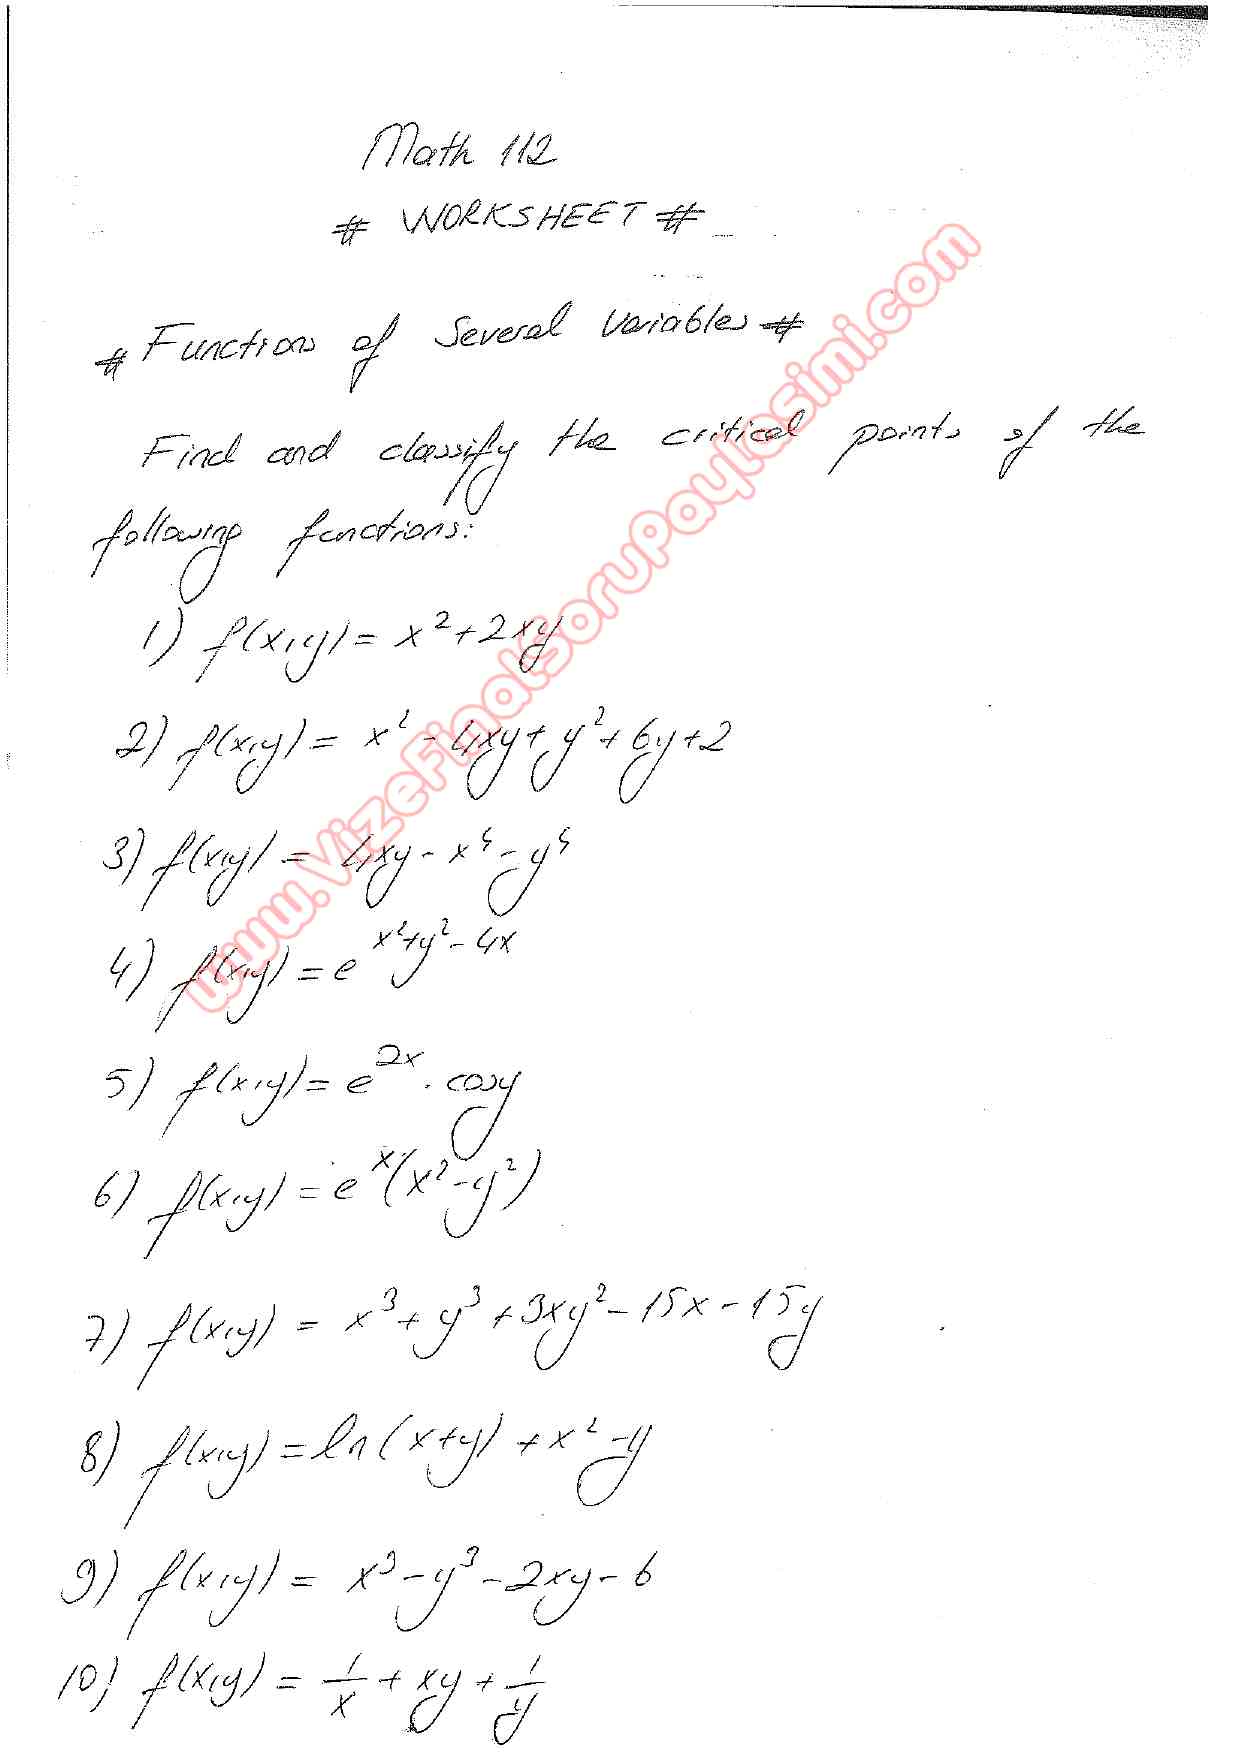 Math 112
# WORKSHEET #
# Functions of Several Variables #
Find and classify the critical points of the
following functions:
1) f(x,y) = x² + 2xy
2) f(x,y) = x² - 4xy + y² + 6y + 2
3) f(x,y) = 4xy - x⁴ - y⁴
4) f(x,y) = e^(x²+y²-4x)
5) f(x,y) = e^(2x) . cosy
6) f(x,y) = e^x (x² - y²)
7) f(x,y) = x³ + y³ + 3xy² - 15x - 15y
8) f(x,y) = ln(x+y) + x² - y
9) f(x,y) = x³ - y³ - 2xy - 6
10) f(x,y) = 1/x + xy + 1/y
www.VizeFinalSoruPaylasimi.com